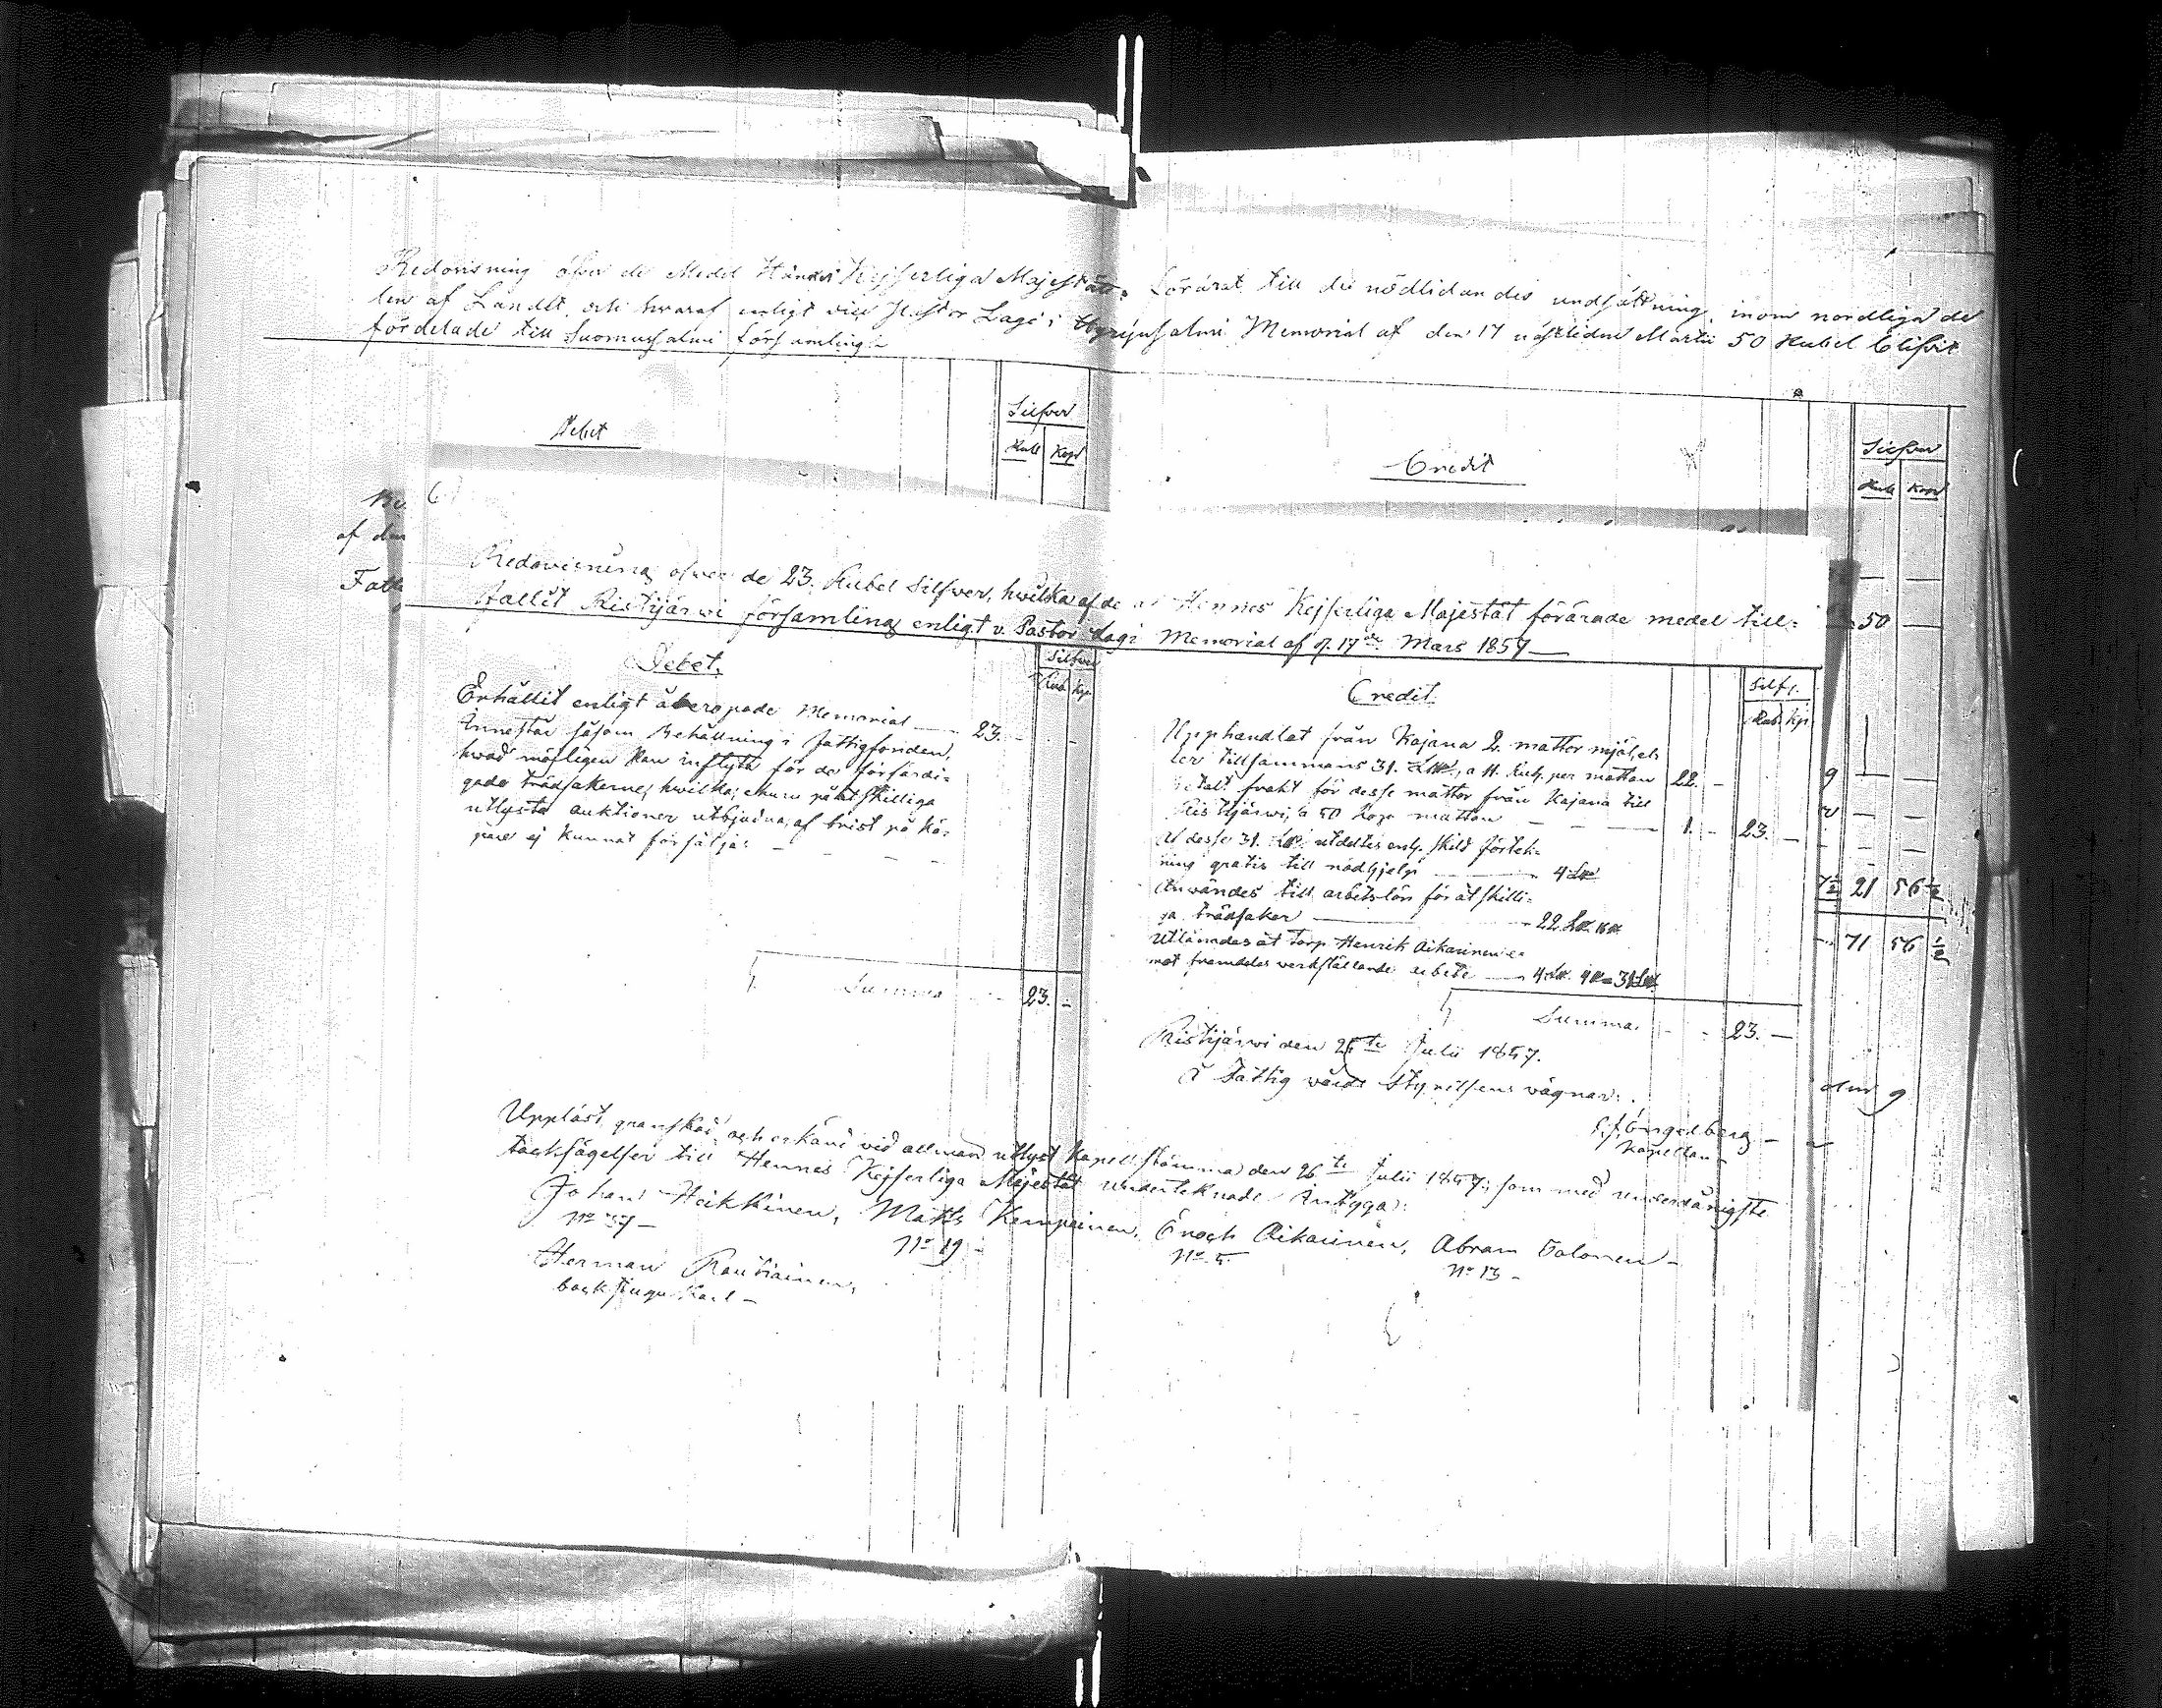 Redovisning öfver de Medel Hännes Kejserliga Majestät förärat till de nödlidandes undsättning, inom nordliga de
len af Landet, och hvaraf enligt vice Pastor Lagi i Hyrynsalmi Memorial af den 17 nästliden Martii 50 Rubel blifvit
fördelade till Suomussalmi församling
Debet
Silfver
Rub Kop
Credit
Silfver
Rub Kop
af den
50
9
7½ 21 56½
71 56½
den 9
Redovisning öfver de 23. Rubel Silfver, hvilka af de af Hennes Kejserliga Majestät förärade medel till-
fallit Ristijärvi församling enligt v. Pastor Lagi Memorial af d. 17de Mars 1857
Debet.
Silfver
Rub Kp.
Erhållit enligt åberopade Memorial 23. -
Innestår såsom Behållning i fattigfonden,
hvad möjligen kan inflyta för de förfärdi-
gade trädsakerne, hvilka, ehuru på åtskilliga
utlysta auktioner utbjudna, af brist på kö-
pare ej kunnat försäljas
Summa 23. -
Credit.
Silfv.
Rub. Kp.
Upphandlat från Kajana 2. mattor mjöl, el-
ler tillsammans 31. L℔., a 11. Rub. per mattan 22. -
Betalt frakt för desse mattor från Kajana till
Ristijärvi, a 50 Kop. mattan 1. - 23. -
Af desse 31. L℔ utdeltes enl. skild förtek-
ning gratis till nödhjelp 4 L℔
Användes till arbetslön för åtskilli-
ga trädsaker 22 L℔ 16 ℔.
Utlånades åt Torp. Henrik Aikarinen
mot framdeles verkställande arbete 4 L℔. 4 ℔ = 31 L℔
Summa 23. -
Ristijärvi den 26te Julii 1857.
Å Fattigvårds Styrelsens vägnar:
Engelberg
Kapellan
Uppläst, granskad och erkänd vid allmän utlyst Kapell stämma den 26te Julii 1857; som med underdånigste
tacksägelser till Hennes Kejserliga Majestät undertecknade intyga:
Johan Heikkinen, Matts Kemppainen, Enoch Aikarinen, Abram Tolonen
No 37 No 19 No 5. No 13
Herman Rautiainen,
backstugu karl